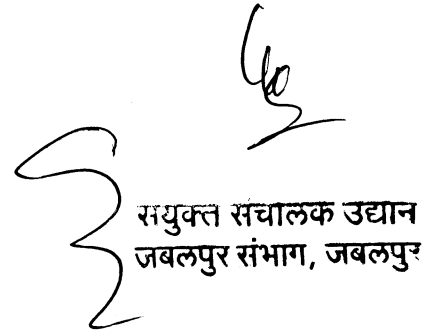 सयुक्त संचालक उद्यान
जबलपुर संभाग, जबलपुर